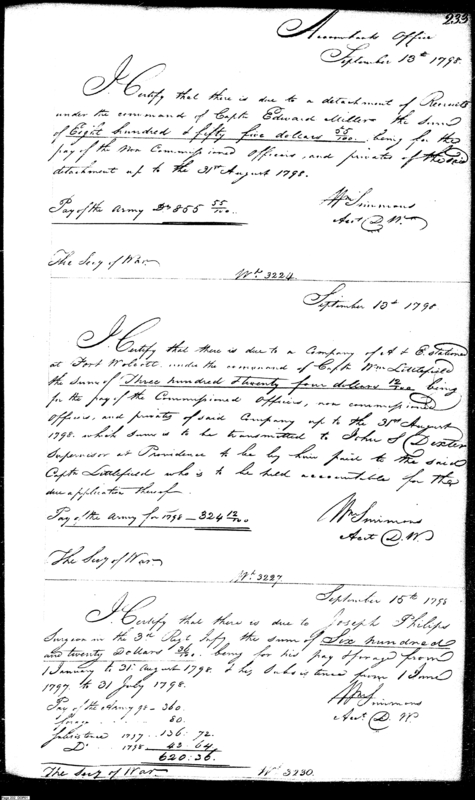 233
Accountants Office
September 13th 1798
I Certify that there is due to a detachment of Recruits
under the command of Captn Edward Miller the sum
of Eight hundred & fifty five dollars 55/100 being for the
pay of the non Commissioned Officers, and privates of the said
detachment up to the 31st August 1798.
Wm Simmons
Acct D. Wr
Pay of the Army Drs 855 55/100
The Secy of War
Wt 3224
September 13th 1798
I Certify that there is due to a Company of A & E stationed
at Fort Wolcott under the command of Captn Wm Littlefield
the sum of Three hundred & twenty four dollars 12/100 being
for the pay of the Commissioned Officers, non commissioned
Officers, and privates of said Company up to the 31st August
1798. which sum is to be transmitted to John S Dexter
Supervisor at Providence to be by him paid to the said
Captn Littlefield who is to be held accountable for the
due application thereof.
Wm Simmons
Acct D. W
Pay of the Army for 1798 — 324 12/100
The Secy of War
Wt 3227
September 15th 1798
I Certify that there is due to Joseph Philips
Surgeon in the 3rd Regt Infy the sum of Six hundred
and twenty Dollars 36/100. being for his pay & forage from
1 January to 31st August 1798. & his Subsistence from 1 June
1797. to 31 July 1798.
Wm Simmons
Acct D. W.
Pay of the Army 98 — 360.
Forage 80.
Subsistence 1797 — 136. 72.
Do 1798 43. 64
620. 36.
The Secy of War
Wt 3230.